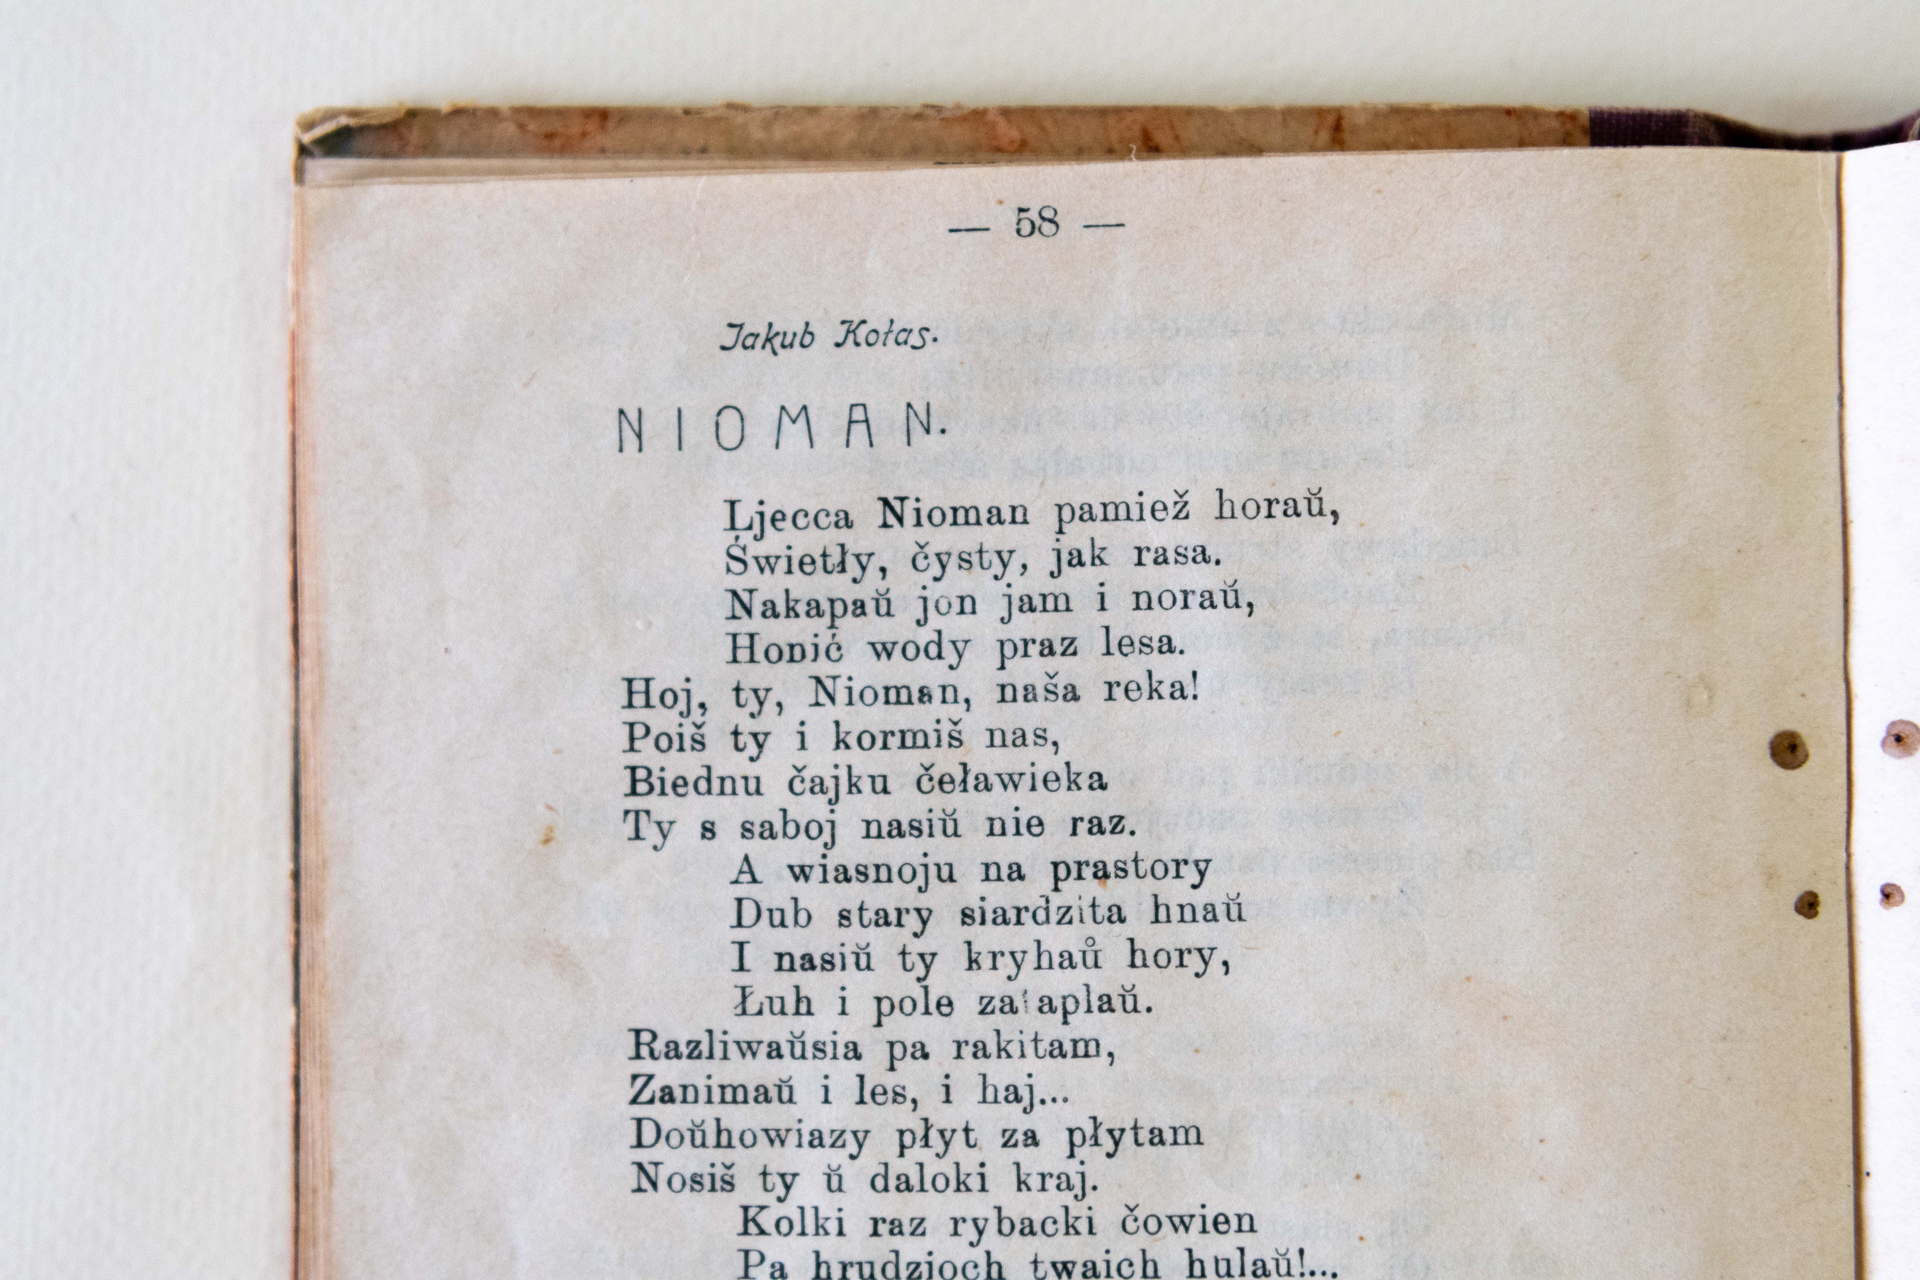 — 58 —
Jakub Kołas.
NIOMAN.
Ljecca Nioman pamiež horaŭ,
Świetły, čysty, jak rasa.
Nakapaŭ jon jam i noraŭ,
Honić wody praz lesa.
Hoj, ty, Nioman, naša reka!
Poiš ty i kormiš nas,
Biednu čajku čeławieka
Ty s saboj nasiŭ nie raz.
A wiasnoju na prastory
Dub stary siardzita hnaŭ
I nasiŭ ty kryhaů hory,
Łuh i pole za aplaŭ.
Razliwaŭsia pa rakitam,
Zanimaŭ i les, i haj...
Doŭhowiazy płyt za płytam
Nosiš ty ŭ daloki kraj.
Kolki raz rybacki čowien
Pa hrudzioch twaich hulaŭ!...